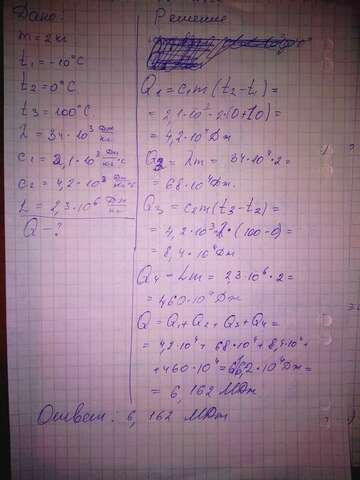 Дано:
m = 2 кг
t₁ = -10°C
t₂ = 0°C
t₃ = 100°C
λ = 34·10³ Дж/кг
c₁ = 2,1·10³ Дж/кг·°C
c₂ = 4,2·10³ Дж/кг·°C
L = 2,3·10⁶ Дж/кг
Q - ?
Решение
Q₁ = c₁m(t₂-t₁) =
= 2,1·10³·2(0+10) =
= 4,2·10⁴ Дж
Q₂ = λm = 34·10⁴·2 =
= 68·10⁴ Дж.
Q₃ = c₂m(t₃-t₂) =
= 4,2·10³·2·(100-0) =
= 8,4·10⁴ Дж
Q₄ = Lm = 2,3·10⁶·2 =
= 460·10⁴ Дж
Q = Q₁+Q₂+Q₃+Q₄ =
= 4,2·10⁴+68·10⁴+8,4·10⁴+
+460·10⁴ = ·10⁴ Дж =
= 6,162 МДж
Ответ: 6,162 МДж